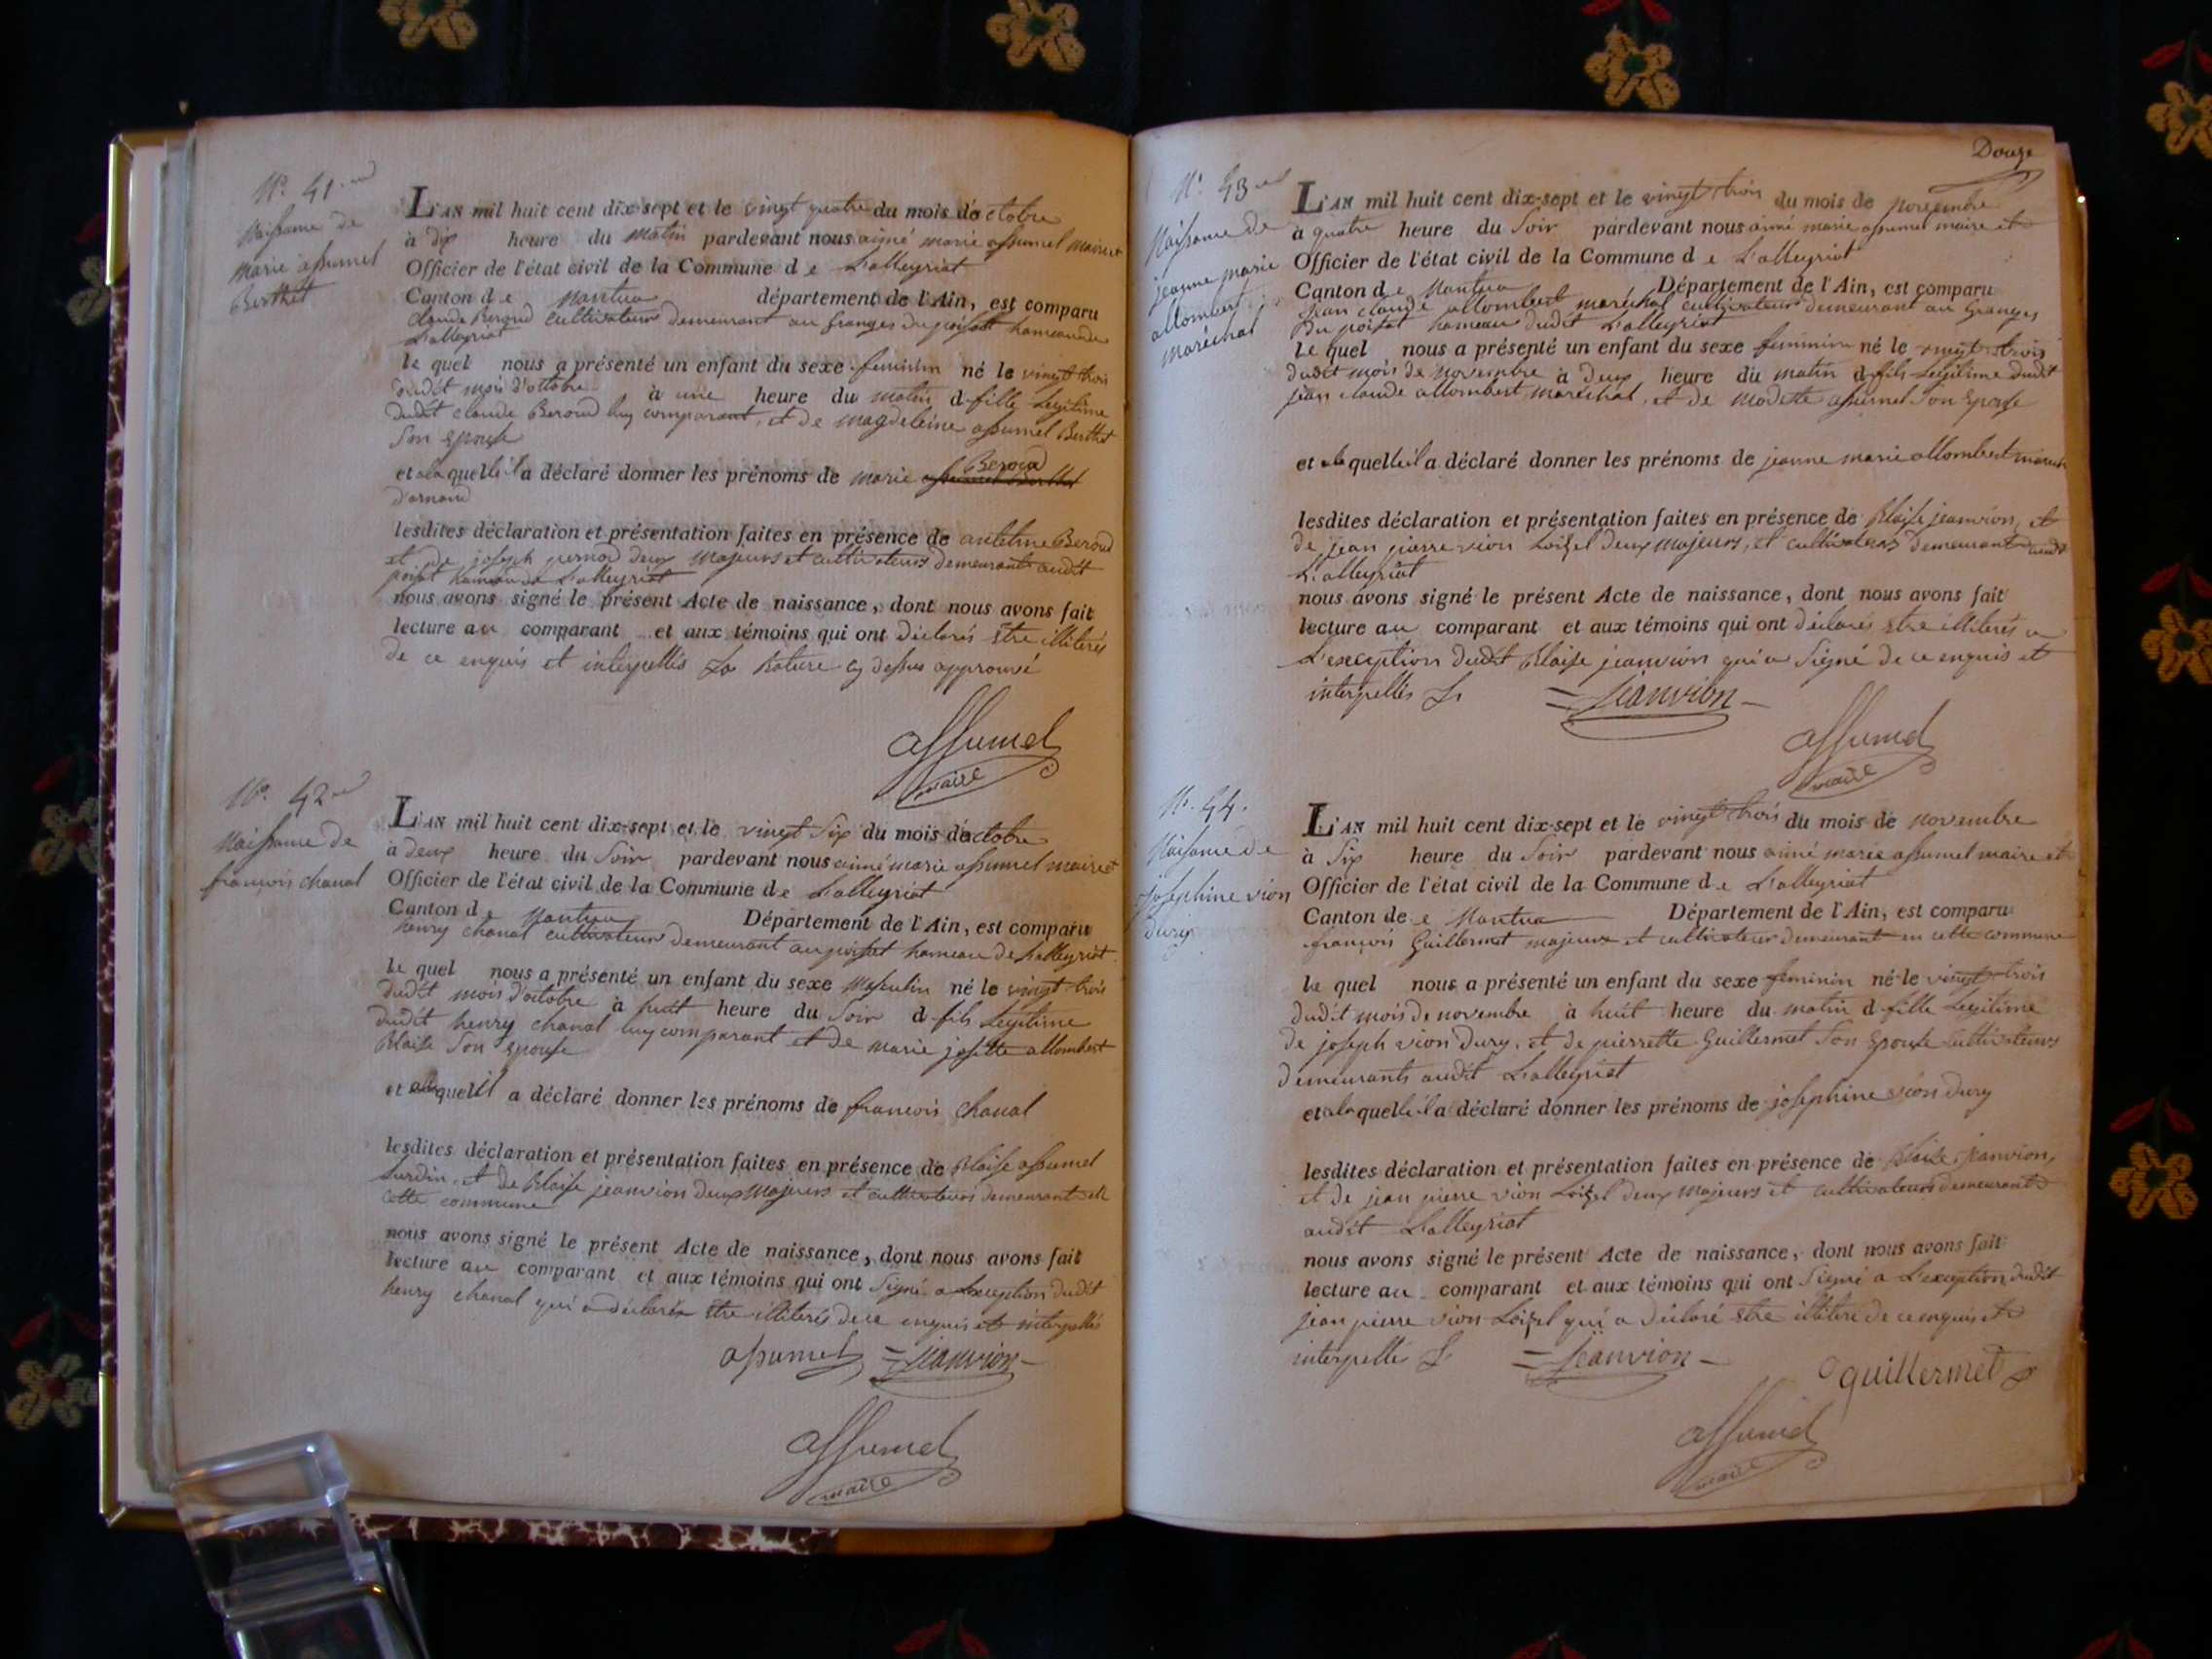 N.º 41.
Naissance de
Marie assumel
Berthet
L'AN mil huit cent dix-sept et le vingt quatre du mois d'octobre
à dix heure du matin pardevant nous aimé marie assumel maire et
Officier de l'état civil de la Commune de L'alleyriat
Canton de Nantua département de l'Ain, est comparu
Claude Beroud cultivateur demeurant au granges du poisat hameau de
L'alleyriat
le quel nous a présenté un enfant du sexe feminin né le vingt trois
dudit mois d'octobre à une heure du matin d fille Legitime
dudit claude Beroud luy comparant, et de magdeleine assumel Berthet
Son Epouse
et a la quelle il a déclaré donner les prénoms de marie Beroud
d'arnaud
lesdites déclaration et présentation faites en présence de antelme Beroud
et de joseph pernod deux Majeurs et cultivateurs demeurants audit
poisat hameau de L'alleyriat
nous avons signé le présent Acte de naissance, dont nous avons fait
lecture au comparant et aux témoins qui ont déclarés Etre illiterés
de ce enquis et interpellés La Rature cy dessus approuvé
assumel
maire
N.º 42
Naissance de
françois chanal
L'AN mil huit cent dix-sept et le vingt Six du mois d'octobre
à deux heure du Soir pardevant nous aimé marie assumel maire et
Officier de l'état civil de la Commune de L'alleyriat
Canton de Nantua Département de l'Ain, est comparu
henry chanal cultivateur demeurant au poisat hameau de Lalleyriat
le quel nous a présenté un enfant du sexe Masculin né le vingt trois
dudit mois d'octobre à huit heure du Soir d fils Legitime
dudit henry chanal luy comparant et de marie josette allombert
Blaise Son Epouse
et auquel il a déclaré donner les prénoms de francois Chanal
lesdites déclaration et présentation faites en présence de Blaise assumel
Lurdin, et de Blaise jeanvion deux Majeurs et cultivateurs demeurants en
cette commune
nous avons signé le présent Acte de naissance, dont nous avons fait
lecture au comparant et aux témoins qui ont Signé a Lexception dudit
henry chanal qui a déclaré Etre illiterés de ce enquis et interpellés
assumel = Jeanvion
assumel
maire
Douze
N.º 43
Naissance de
jeanne marie
allombert
maréchal
L'AN mil huit cent dix-sept et le vingt trois du mois de novembre
à quatre heure du Soir pardevant nous aimé marie assumel maire et
Officier de l'état civil de la Commune de L'alleyriat
Canton de Nantua Département de l'Ain, est comparu
Jean claude allombert maréchal cultivateur demeurant au Granges
Du poisat hameau dudit L'alleyriat
le quel nous a présenté un enfant du sexe feminin né le vingt trois
dudit mois de Novembre à deux heure du matin d fils Legitime dudit
jean claude allombert maréchal, et de Modeste assumel Son Epouse
et a la quelle il a déclaré donner les prénoms de jeanne marie allombert
lesdites déclaration et présentation faites en présence de Blaise jeanvion, et
de jean pierre vion Loisel deux Majeurs, et cultivateurs demeurants audit
L'alleyriat
nous avons signé le présent Acte de naissance, dont nous avons fait
lecture au comparant et aux témoins qui ont déclarés Etre illiterés a
L'exception dudit Blaise jeanvion qui a Signé de ce enquis et
interpellés = Jeanvion
assumel
maire
N.º 44.
Naissance de
josephine vion
Dury
L'AN mil huit cent dix-sept et le vingt trois du mois de novembre
à Six heure du Soir pardevant nous aimé marie assumel maire et
Officier de l'état civil de la Commune de L'alleyriat
Canton de Nantua Département de l'Ain, est comparu
françois Guillermet majeur et cultivateur demeurant en cette commune
le quel nous a présenté un enfant du sexe feminin né le vingt trois
dudit mois de novembre à huit heure du matin d fille Legitime
de joseph vion Dury, et de pierrette Guillermet Son Epouse cultivateurs
demeurants audit L'alleyriat
et a la quelle il a déclaré donner les prénoms de josephine vion Dury
lesdites déclaration et présentation faites en présence de Blaise jeanvion,
et de jean pierre vion Loisel deux Majeurs et cultivateurs demeurants
audit L'alleyriat
nous avons signé le présent Acte de naissance, dont nous avons fait
lecture au comparant et aux témoins qui ont Signé a L'exception dudit
jean pierre vion Loisel qui a déclaré Etre illiteré de ce enquis et
interpellé = Jeanvion
guillermet
assumel
maire